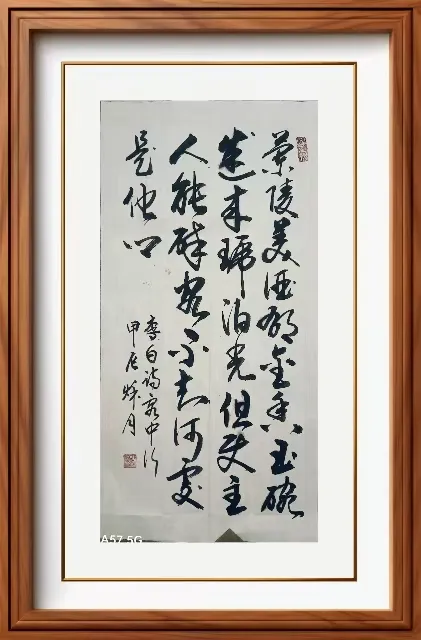 蘭陵美酒郁金香玉碗
盛来琥珀光但使主
人能醉客不知何處
是他
李白詩客中行
甲辰秋月
A57 5G